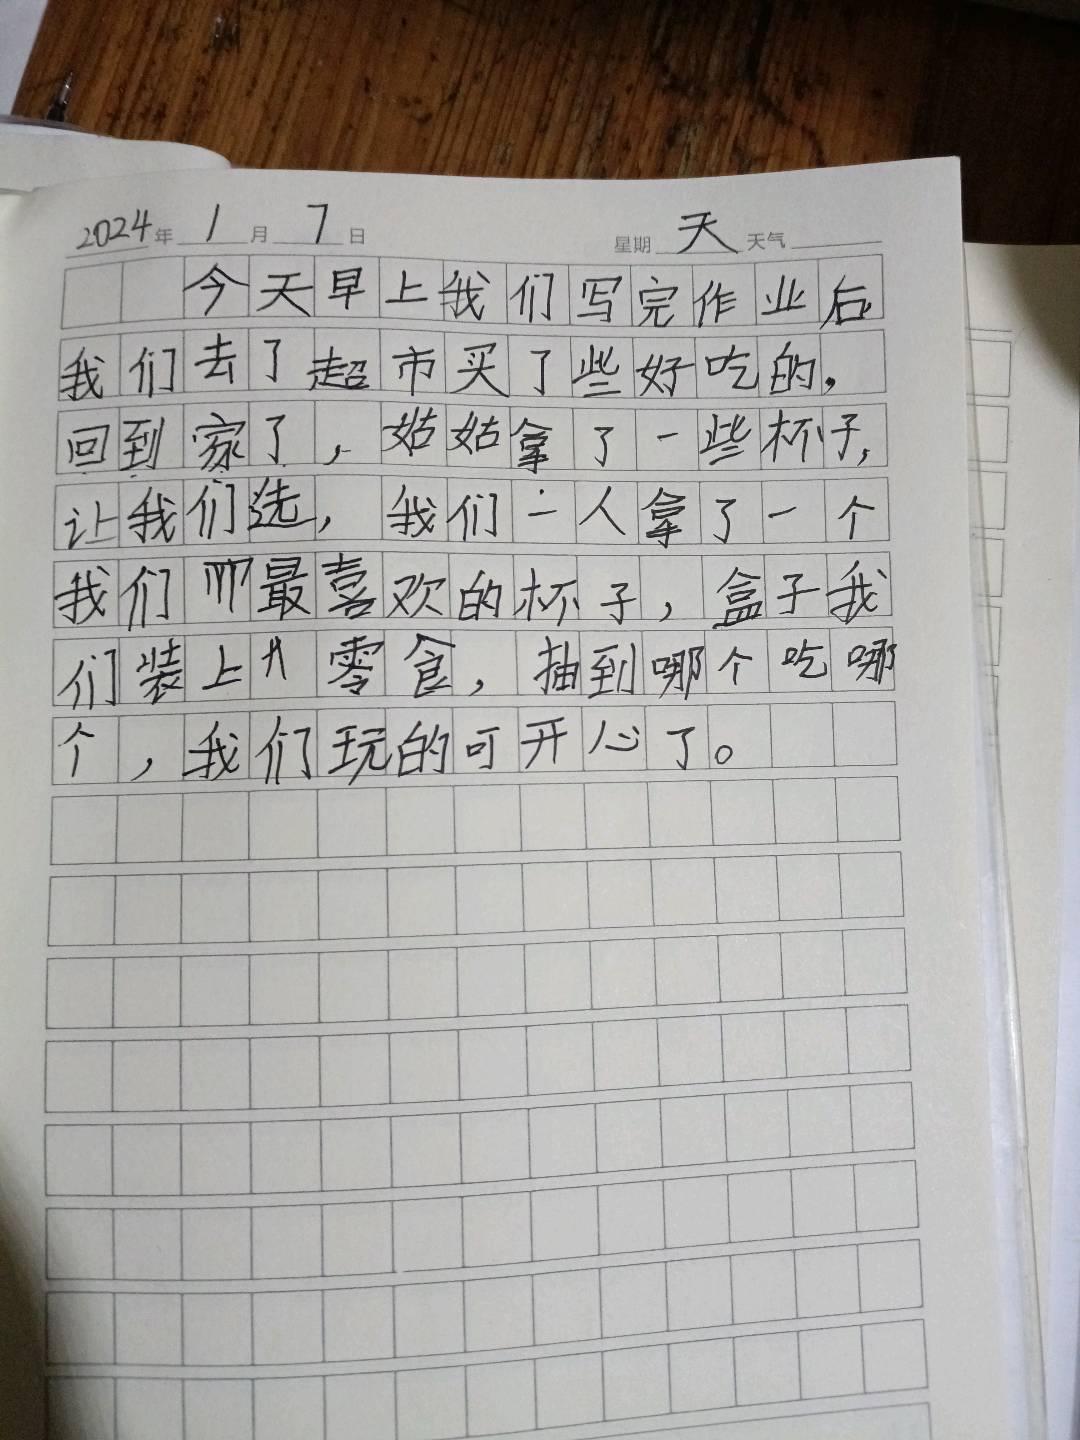 2024年 1月 7日 星期 天 天气
今天早上我们写完作业后
我们去了超市买了些好吃的，
回到家了，姑姑拿了一些杯子，
让我们选，我们一人拿了一个
我们最喜欢的杯子，盒子我
们装上零食，抽到哪个吃哪
个，我们玩的可开心了。